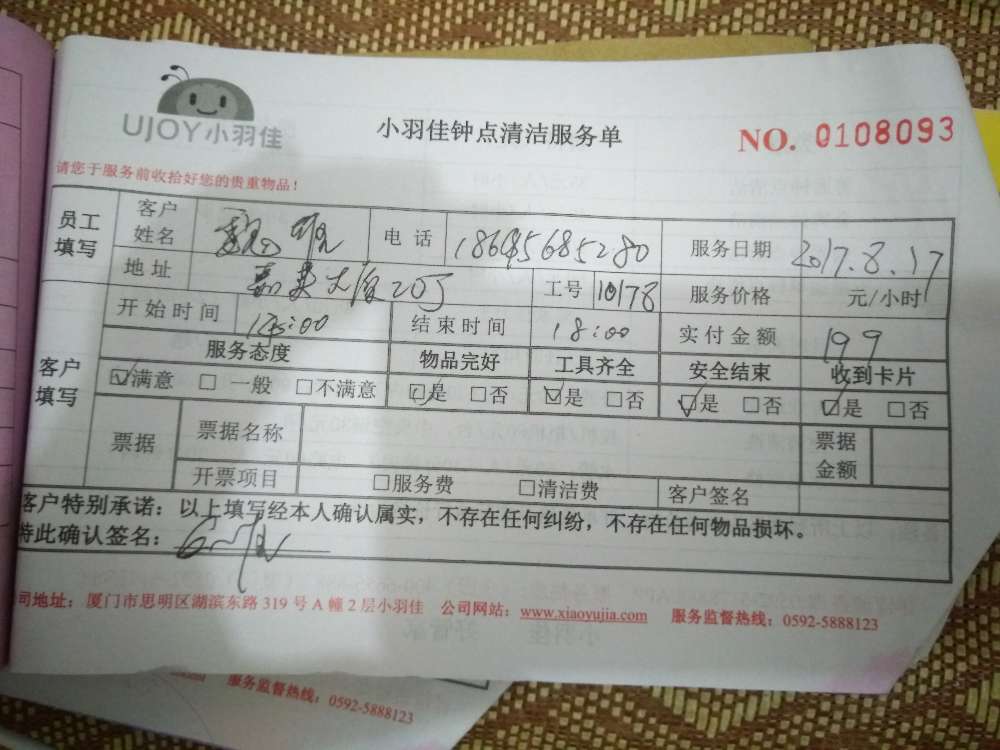 UJOY小羽佳
小羽佳钟点清洁服务单
NO. 0108093
请您于服务前收拾好您的贵重物品！
员工填写 客户姓名 电话 服务日期 2017.8.17
地址 工号 10178 服务价格 元/小时
客户填写 开始时间 :00 结束时间 18:00 实付金额 199
服务态度 物品完好 工具齐全 安全结束 收到卡片
☑满意 □一般 □不满意 ☑是 □否 ☑是 □否 ☑是 □否 ☑是 □否
票据 票据名称 票据金额
开票项目 □服务费 □清洁费 客户签名
客户特别承诺：以上填写经本人确认属实，不存在任何纠纷，不存在任何物品损坏。
特此确认签名：
司地址：厦门市思明区湖滨东路 319 号 A 幢 2 层小羽佳 公司网站：www.xiaoyujia.com 服务监督热线：0592-5888123
服务监督热线：0592-5888123